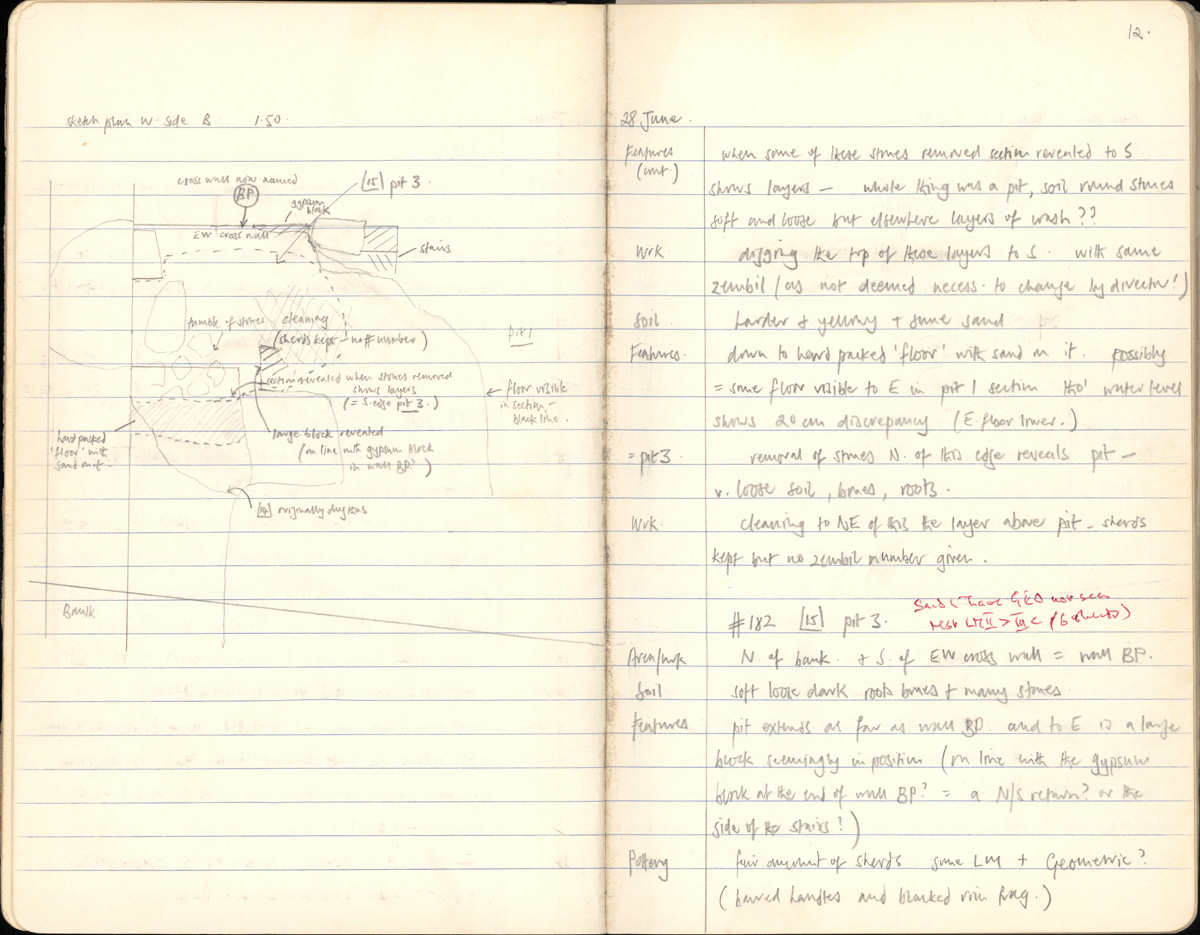 sketch plan W. side B 1.50.
cross wall now named
BP
[15] pit 3.
gypsum
block
EW cross wall
stairs
tumble of stones
cleaning
(sherds kept – no # number)
pit 1
section revealed when stones removed
shows layers
(= S. edge pit 3.)
floor visible
in section –
black line.
hard packed
'floor' with
sand in it.
large block revealed
(in line with gypsum block
in wall BP?)
[14] originally dug thus
Bank
12.
28 June.
Features when some of these stones removed section revealed to S
(cont.) shows layers – whole thing was a pit, soil round stones
soft and loose but elsewhere layers of wash??
Wrk. digging the top of these layers to S. with same
zembil (as not deemed necess. to change by director!)
Soil harder & yellowy + some sand
Features. down to hard packed 'floor' with sand in it. possibly
= same floor visible to E in pit 1 section tho' water level
shows 20 cm discrepancy (E. floor lower.)
= pit 3 removal of stones N. of this edge reveals pit –
v. loose soil, bones, roots.
Wrk. cleaning to NE of this the layer above pit – sherds
kept but no zembil number given.
#182 [15] pit 3.
have GEO not seen
rest LM II > III < (6 sherds)
Area/wrk N. of bank. & S. of EW cross wall = wall BP.
Soil soft loose dark roots bones & many stones.
Features pit extends as far as wall BP. and to E is a large
block seemingly in position (in line with the gypsum
block at the end of wall BP? = a N/S return? or the
side of the stairs?)
Pottery fair amount of sherds. some LM + Geometric?
(barred handles and blacked rim frag.)